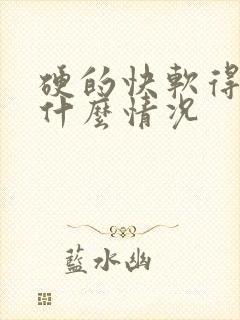 硬的快軟得
什麼情況
藍水幽